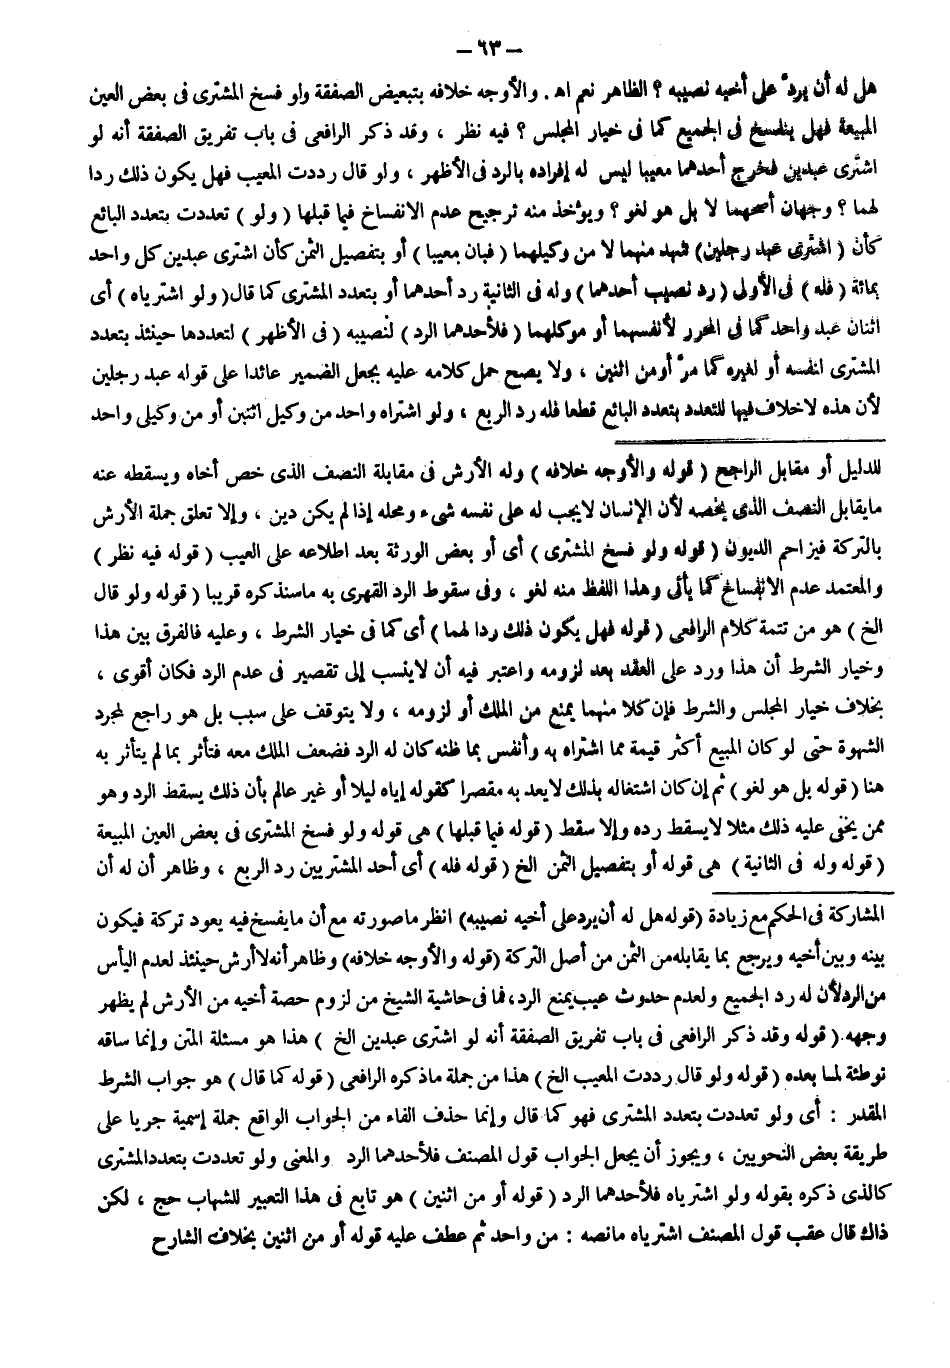 – ٦٣ –
هل له أن يردّ على أخيه نصيبه ؟ الظاهر نعم اهـ . والأوجه خلافه بتبعيض الصفقة ولو فسخ المشترى فى بعض العين
المبيعة فهل ينفسخ فى الجميع كما فى خيار المجلس ؟ فيه نظر ، وقد ذكر الرافعى فى باب تفريق الصفقة أنه لو
اشترى عبدين فخرج أحدهما معيبا ليس له إفراده بالرد فى الأظهر ، ولو قال رددت المعيب فهل يكون ذلك ردا
لهما ؟ وجهان أصحهما لا بل هو لغو ؟ ويؤخذ منه ترجيح عدم الانفساخ فيما قبلها ( ولو ) تعددت بتعدد البائع
كأن ( اشترى عبد رجلين ) منهما لا من وكيلهما ( فبان معيبا ) أو بتفصيل الثمن كأن اشترى عبدين كل واحد
بمائة ( فله ) فى الأولى ( رد نصيب أحدهما ) وله فى الثانية رد أحدهما أو بتعدد المشترى كما قال ( ولو اشترياه ) أى
اثنان عبد واحد كما فى المحرر لأنفسهما أو موكلهما ( فلأحدهما الرد ) لنصيبه ( فى الأظهر ) لتعددها حينئذ بتعدد
المشترى لنفسه أو لغيره كما مرّ أو من اثنين ، ولا يصح حمل كلامه عليه بجعل الضمير عائدا على قوله عبد رجلين
لأن هذه لا خلاف فيها للتعدد بتعدد البائع قطعا فله رد الربع ، ولو اشتراه واحد من وكيل اثنين أو من وكيلى واحد
للدليل أو مقابل الراجح ( قوله والأوجه خلافه ) وله الأرش فى مقابلة النصف الذى خص أخاه ويسقطه عنه
مايقابل النصف الذى يخصه لأن الإنسان لايجب له على نفسه شىء ومحله إذا لم يكن دين ، وإلا تعلق جملة الأرش
بالتركة فيزاحم الديون ( قوله ولو فسخ المشترى ) أى أو بعض الورثة بعد اطلاعه على العيب ( قوله فيه نظر )
والمعتمد عدم الانفساخ كما يأتى وهذا اللفظ منه لغو ، وفى سقوط الرد القهرى به ماسنذكره قريبا ( قوله ولو قال
الخ ) هو من تتمة كلام الرافعى ( قوله فهل يكون ذلك ردا لهما ) أى كما فى خيار الشرط ، وعليه فالفرق بين هذا
وخيار الشرط أن هذا ورد على العقد بعد لزومه واعتبر فيه أن لاينسب إلى تقصير فى عدم الرد فكان أقوى ،
بخلاف خيار المجلس والشرط فإن كلا منهما يمنع من الملك أو لزومه ، ولا يتوقف على سبب بل هو راجع لمجرد
الشهوة حتى لو كان المبيع أكثر قيمة مما اشتراه به وأنفس بما ظنه كان له الرد فضعف الملك معه فتأثر بما لم يتأثر به
هنا ( قوله بل هو لغو ) ثم إن كان اشتغاله بذلك لايعد به مقصرا كقوله إياه ليلا أو غير عالم بأن ذلك يسقط الرد وهو
ممن يخفى عليه ذلك مثلا لايسقط رده وإلا سقط ( قوله فيما قبلها ) هى قوله ولو فسخ المشترى فى بعض العين المبيعة
( قوله وله فى الثانية ) هى قوله أو بتفصيل الثمن الخ ( قوله فله ) أى أحد المشتريين رد الربع ، وظاهر أن له أن
المشاركة فى الحكم مع زيادة ( قوله هل له أن يرد على أخيه نصيبه ) انظر ماصورته مع أن مايفسخ فيه يعود تركة فيكون
بينه وبين أخيه ويرجع بما يقابله من الثمن من أصل التركة ( قوله والأوجه خلافه ) وظاهر أنه لا أرش حينئذ لعدم اليأس
من الرد لأن له رد الجميع ولعدم حدوث عيب يمنع الرد ، فما فى حاشية الشيخ من لزوم حصة أخيه من الأرش لم يظهر
وجهه . ( قوله وقد ذكر الرافعى فى باب تفريق الصفقة أنه لو اشترى عبدين الخ ) هذا هو مسئلة المتن وإنما ساقه
توطئة لما بعده ( قوله ولو قال رددت المعيب الخ ) هذا من جملة ماذكره الرافعى ( قوله كما قال ) هو جواب الشرط
المقدر : أى ولو تعددت بتعدد المشترى فهو كما قال وإنما حذف الفاء من الجواب الواقع جملة إسمية جريا على
طريقة بعض النحويين ، ويجوز أن يجعل الجواب قول المصنف فلأحدهما الرد والمعنى ولو تعددت بتعدد المشترى
كالذى ذكره بقوله ولو اشترياه فلأحدهما الرد ( قوله أو من اثنين ) هو تابع فى هذا التعبير للشهاب حج ، لكن
ذاك قال عقب قول المصنف اشترياه مانصه : من واحد ثم عطف عليه قوله أو من اثنين بخلاف الشارح